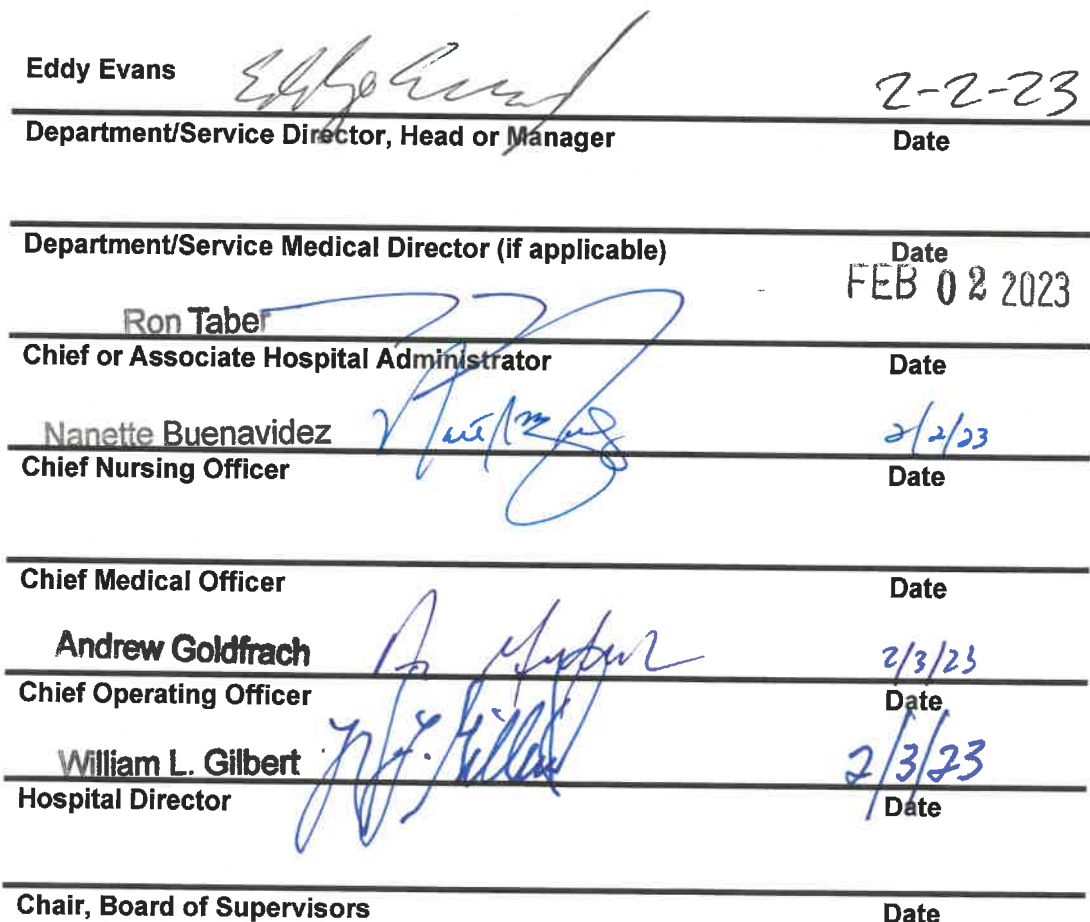 Eddy Evans 2-2-23
Department/Service Director, Head or Manager Date
Department/Service Medical Director (if applicable) Date
FEB 02 2023
Ron Taber
Chief or Associate Hospital Administrator Date
Nanette Buenavidez 2/2/23
Chief Nursing Officer Date
Chief Medical Officer Date
Andrew Goldfrach 2/3/23
Chief Operating Officer Date
William L. Gilbert 2/3/23
Hospital Director Date
Chair, Board of Supervisors Date